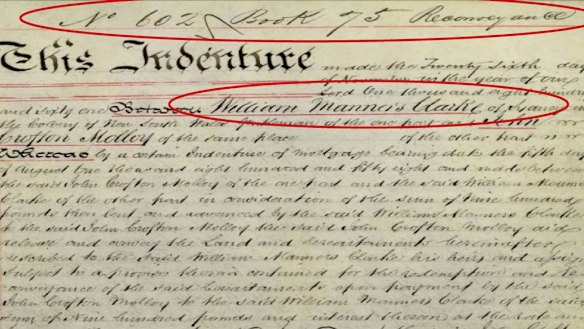 No 602 Book 75 Reconveyance
This Indenture made the Twenty Sixth day
of November in the year of our
Lord One thousand and eight hundred
and sixty one Between William Manners Clarke of Sydney
the Colony of New South Wales of the one part and John
Crofton Molloy of the same place of the other part
Whereas by a certain Indenture of mortgage bearing date the fifth day
of August One thousand and eight hundred and fifty eight and made between
the said John Crofton Molloy of the one part and the said William Manners
Clarke of the other part in consideration of the sum of Nine hundred
pounds then lent and advanced by the said William Manners Clarke
to the said John Crofton Molloy the said John Crofton Molloy did
release and convey the Land and hereditaments hereinafter
described to the said William Manners Clarke his heirs and assigns
Subject to a proviso therein contained for the redemption and re
conveyance of the said hereditaments upon payment by the said
John Crofton Molloy to the said William Manners Clarke of the said
sum of Nine hundred pounds and interest thereon at the rate and